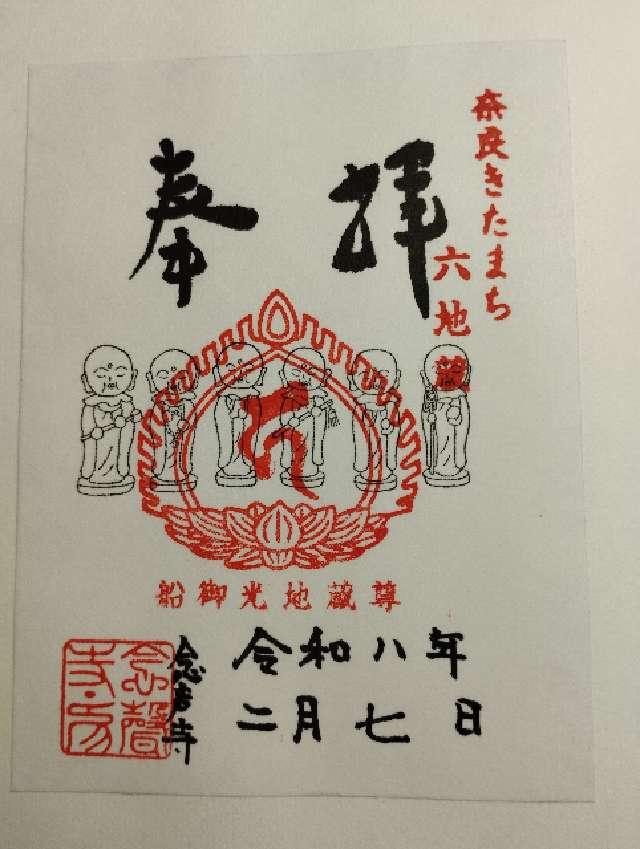 奈良きたまち
六地蔵
奉拝
船御光地蔵尊
令和八年
二月七日
念声寺
念聲寺